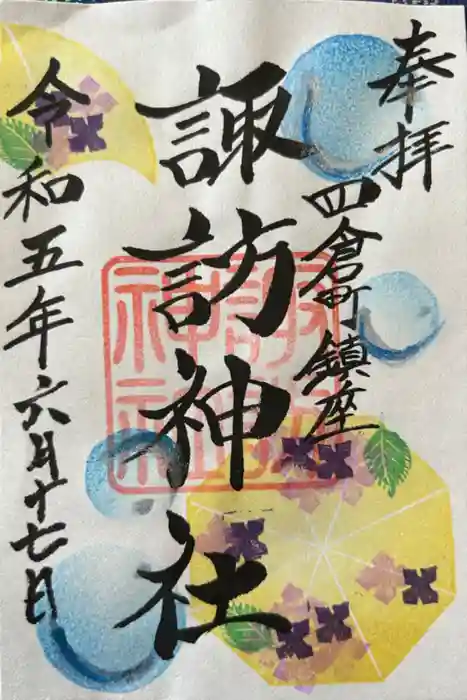 奉拝
四倉町鎮座
諏訪神社
諏訪神社
令和五年六月十七日